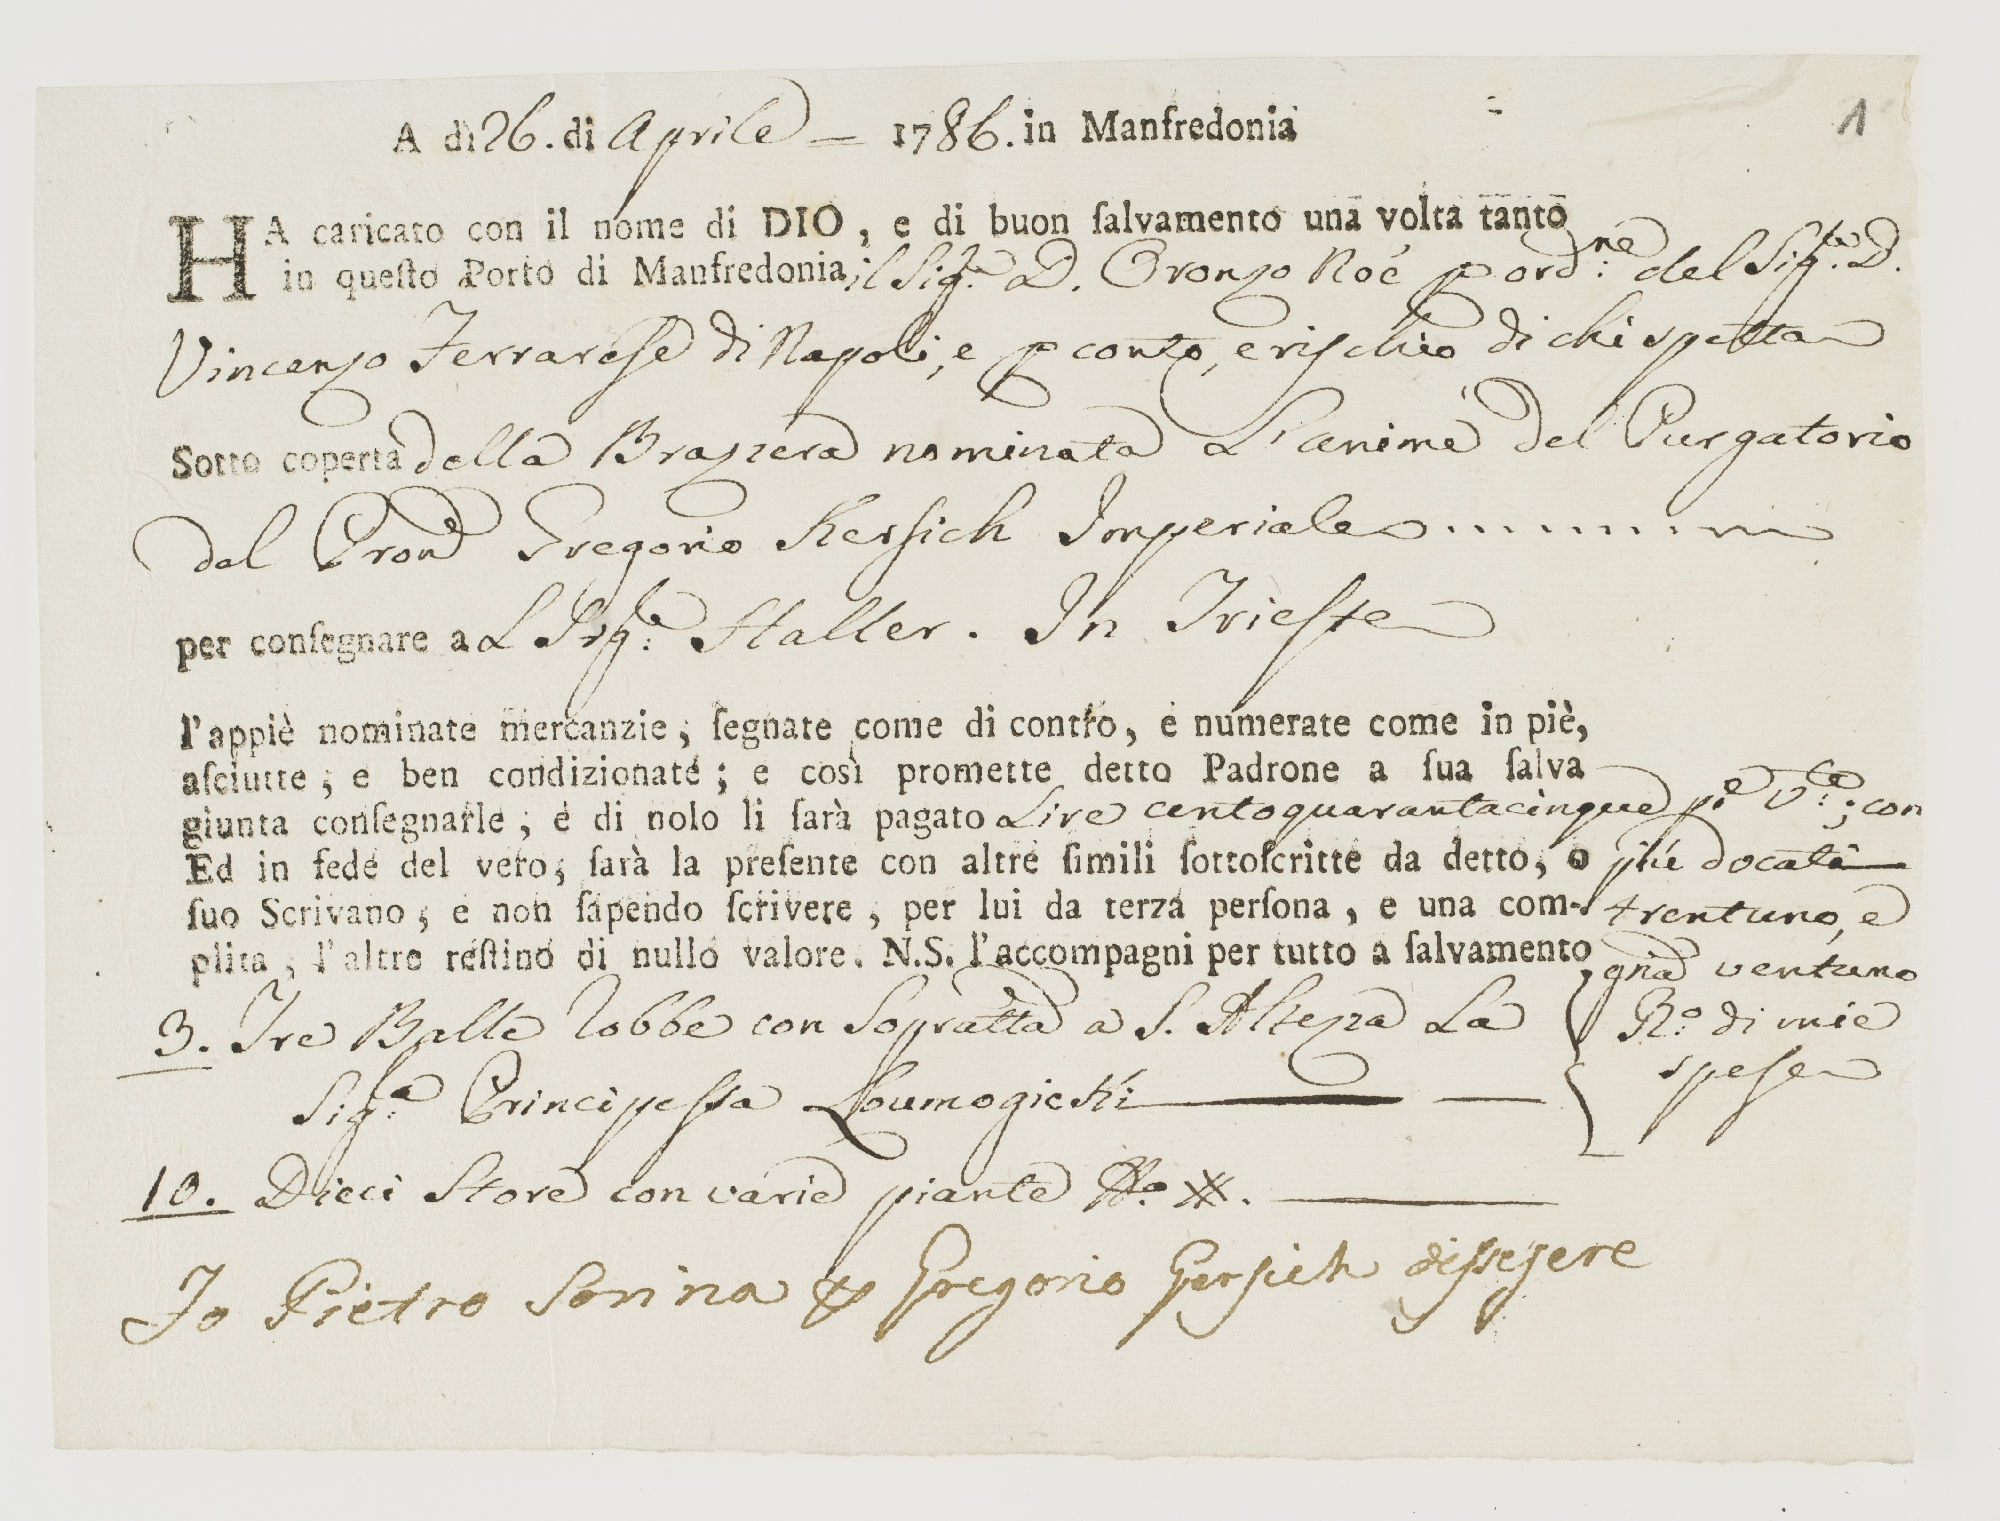 1
A dì 26. di Aprile = 1786. in Manfredonia
HA caricato con il nome di DIO, e di buon ſalvamento una volta tanto
in queſto Porto di Manfredonia il Sig.re D. Oronzo Noé p ord.ne del Sig.re D.
Vincenzo Ferrarese di Napoli, e p conto, e rischio di chi spetta
Sotto coperta della Brazzera nominata L'anime del Purgatorio
del Pron.e Gregorio Kersich Imperiale
per conſegnare al Sig.re Haller. In Trieste
l'appiè nominate mercanzie, ſegnate come di contro, e numerate come in piè,
aſciutte, e ben condizionate; e così promette detto Padrone a ſua ſalva
giunta conſegnarle, e di nolo li ſarà pagato Lire centoquarantacinque p.e V.te; con
Ed in fede del vero, ſarà la preſente con altre ſimili ſottoſcritte da detto, o più docati
ſuo Scrivano, e non ſapendo ſcrivere, per lui da terza perſona, e una com- trentuno, e
plita, l'altre reſtino di nullo valore. N.S. l'accompagni per tutto a ſalvamento, gna ventuno
3. Tre Balle robbe con Sopratta a S. Altezza La R.o di mie
Sig.a Principessa Loumogieski spese
10. Dieci Store con varie piante
Io Pietro Sonina p Gregorio Gersich